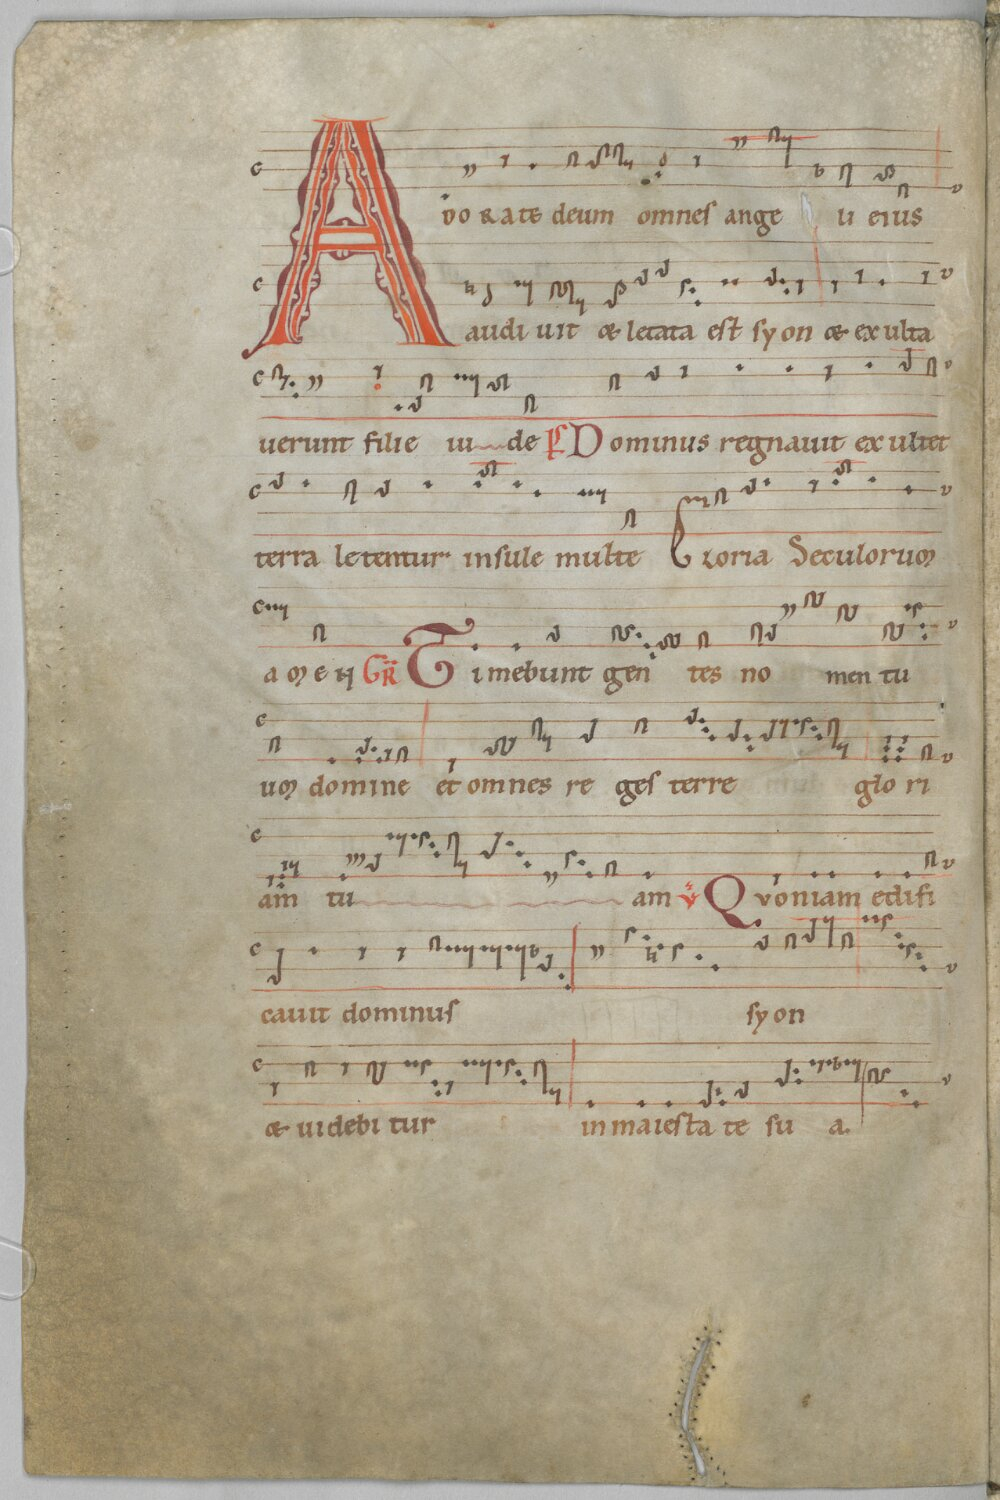 ADORATE deum omnes ange li eius
audiuit & letata est syon & exulta
uerunt filie iu de Ps Dominus regnauit exultet
terra letentur insule multe Gloria Seculorum
amen GR Timebunt gen tes no men tu
um domine et omnes re ges terre glo ri
am tu am V Quoniam edifi
cauit dominus syon
& uidebi tur in maiesta te su a.